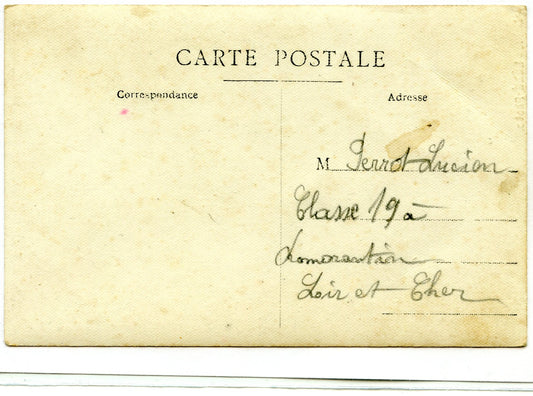 CARTE POSTALE
Correspondance
Adresse
M Perrot Lucien
Classe 19 à
Romorantin
Loir et Cher